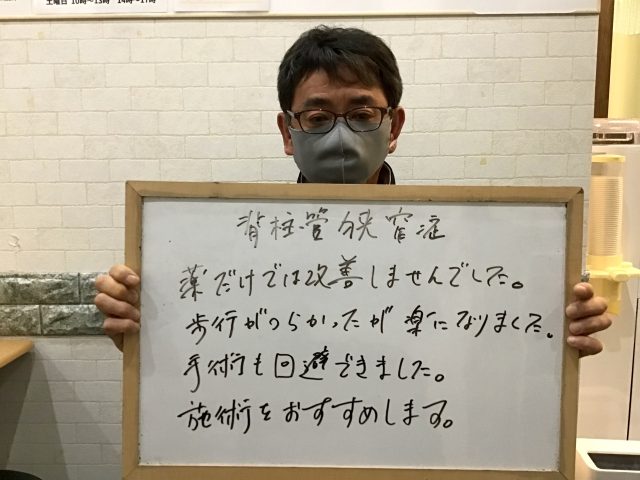 土曜日 10時～13時 14時～17時
脊柱管狭窄症
薬だけでは改善しませんでした。
歩行がつらかったが楽になりました。
手術も回避できました。
施術をおすすめします。